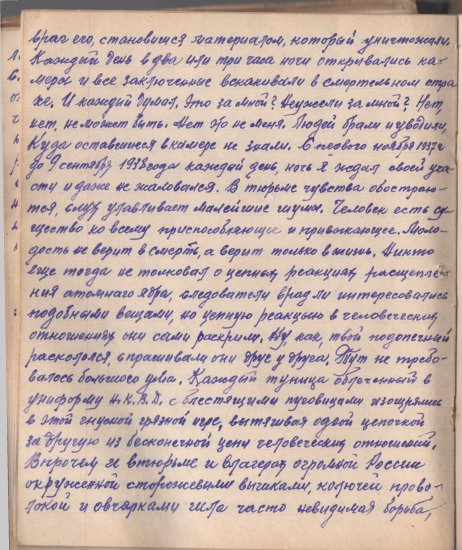 враг его, становишся материалом, который уничтожали.
Каждый день в два или три часа ночи открывались ка-
меры и все заключенные вскакивали в смертельном стра
хе. И каждый думал. Это за мной? Неужели за мной? Нет,
нет, не может быть. Нет это не меня. Людей брали и уводили,
Куда оставшиеся в камере не знали. С первого ноября 1937г
до 9 сентября 1938 года каждый день, ночь я ждал своей уча-
сти и даже не жаловался. В тюрьме чувства обостряю-
тся, слух улавливает малейшие шумы. Человек есть су-
щество ко всему приспособляющие и привыкающее. Моло-
дость не верит в смерть, а верит только в жизнь. Никто
еще тогда не толковал о цепных реакциях расщепле-
ния атомного ядра, следователи врядли интересовались
подобными вещами, но цепную реакцию в человеческих
отношениях они сами раскрыли. Ну как, твой подопечный
раскололся, спрашивали они друг у друга. Тут не требо-
валось большого ума. Каждый тупица облеченный в
униформу Н.К.В.Д. с блестящими пуговицами изощрялись
в этой гнусной грязной игре, вытягивая одной цепочкой
за другую из бесконечной цепи человеческих отношений.
Впрочем и в тюрьме и в лагерях огромной России
окруженной сторожевыми вышками, колючей прово-
локой и овчарками шла часто невидимая борьба,